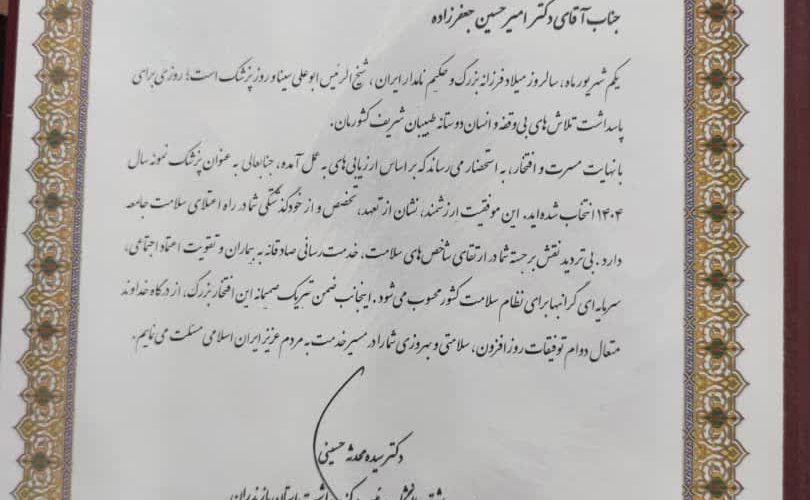 جناب آقای دکتر امیرحسین جعفرزاده
یکم شهریور ماه، سالروز میلاد فرزانه بزرگ و حکیم نامدار ایران، شیخ الرئیس ابوعلی سینا و روز پزشک است؛ روزی برای
پاسداشت تلاش های بی وقفه و انسان دوستانه طبیبان شریف کشورمان.
با نهایت مسرت و افتخار، به استحضار می رساند که بر اساس ارزیابی های به عمل آمده، جنابعالی به عنوان پزشک نمونه سال
۱۴۰۴ انتخاب شده اید. این موفقیت ارزشمند، نشان از تعهد، تخصص و از خودگذشتگی شما در راه اعتلای سلامت جامعه
دارد. بی تردید نقش برجسته شما در ارتقای شاخص های سلامت، خدمت رسانی صادقانه به بیماران و تقویت اعتماد اجتماعی،
سرمایه ای گرانبها برای نظام سلامت کشور محسوب می شود. اینجانب ضمن تبریک صمیمانه این افتخار بزرگ، از درگاه خداوند
متعال دوام توفیقات روز افزون، سلامتی و بهروزی شما را در مسیر خدمت به مردم عزیز ایران اسلامی مسئلت می نمایم.
دکتر سیده محدثه حسینی
استان مازندران